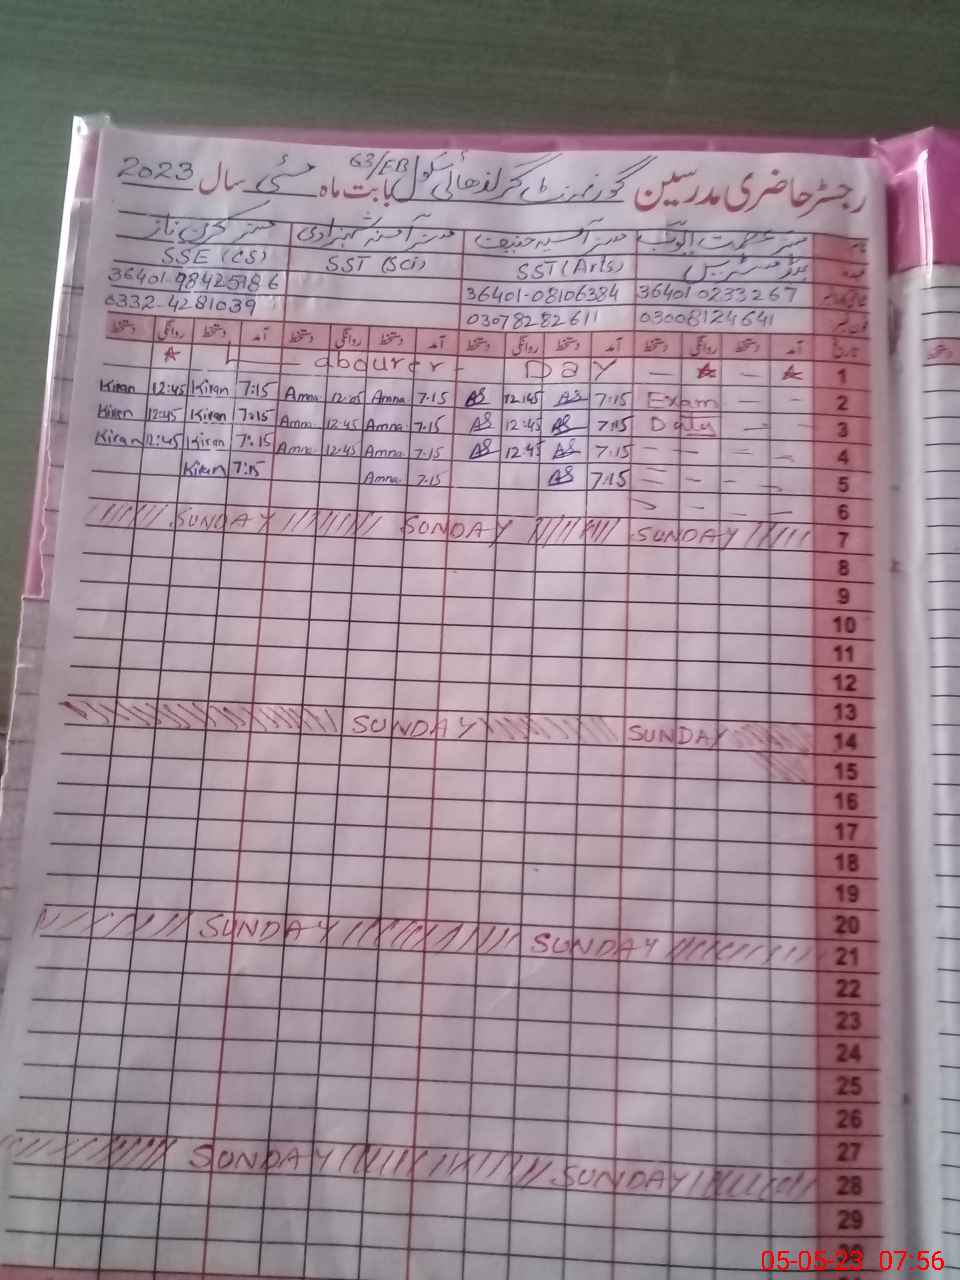 رجسٹر حاضری مدرسین گورنمنٹ گرلز ھائی سکول 63/EB بابت ماہ مئی سال 2023
نام مسز عصمت ایوب مسز آسیہ حنیف مسز آمنہ شہزادی مسز کرن ناز
عہدہ ہیڈ مسٹریس SST (Arts) SST (Sci) SSE (CS)
36401-0233267 36401-08106384 36401-98425186
03008124641 03078282611 0332-4281039
تاریخ آمد دستخط روانگی دستخط آمد دستخط روانگی دستخط آمد دستخط روانگی دستخط آمد دستخط روانگی دستخط
Labourer Day 1
Kiran 12:45 Kiran 7:15 Amna 12:45 Amna 7.15 AS 12:45 AS 7:15 Exam — — 2
Kiran 12:45 Kiran 7:15 Amna 12:45 Amna 7.15 AS 12:45 AS 7:15 Duty — — 3
Kiran 12:45 Kiran 7:15 Amna 12:45 Amna 7.15 AS 12:45 AS 7:15 — — — — 4
Kiran 7:15 Amna 7.15 AS 7:15 — — — — 5
— — — 6
SUNDAY SUNDAY SUNDAY 7
8
9
10
11
12
13
SUNDAY SUNDAY 14
15
16
17
18
19
20
SUNDAY SUNDAY 21
22
23
24
25
26
27
SUNDAY SUNDAY 28
29
05-05-23 07:56